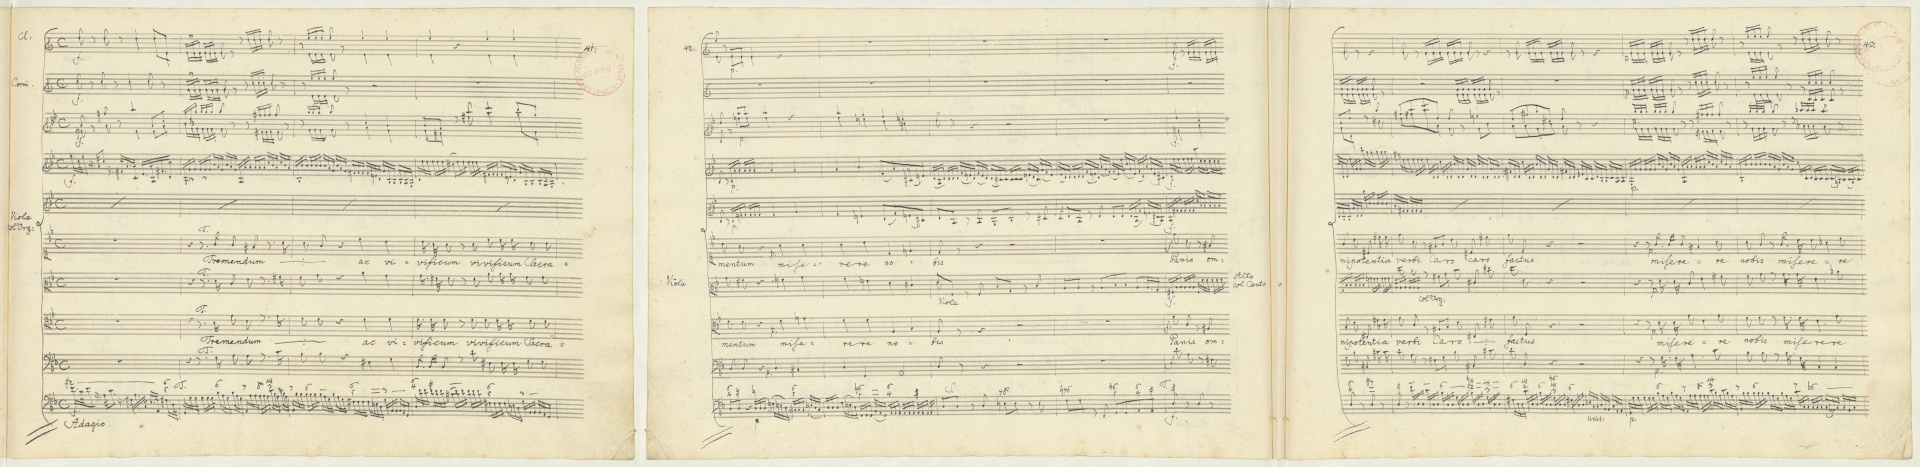 Cl:
41.
Corni.
Viola
col Org:
T.
Tremendum ac vi = vificum vivificum Sacra =
T.
T.
Tremendum ac vi = vificum vivificum Sacra =
T.
T.
Adagio.
42.
mentum mise = rere no = bis Panis om =
Viola
Alto
col Canto
Viola
mentum mise = rere no = bis Panis om =
43
nipotentia verbi Caro caro factus misere = re nobis misere = re
col Org:
nipotentia verbi Caro factus misere = re nobis miserere
unis.
p.